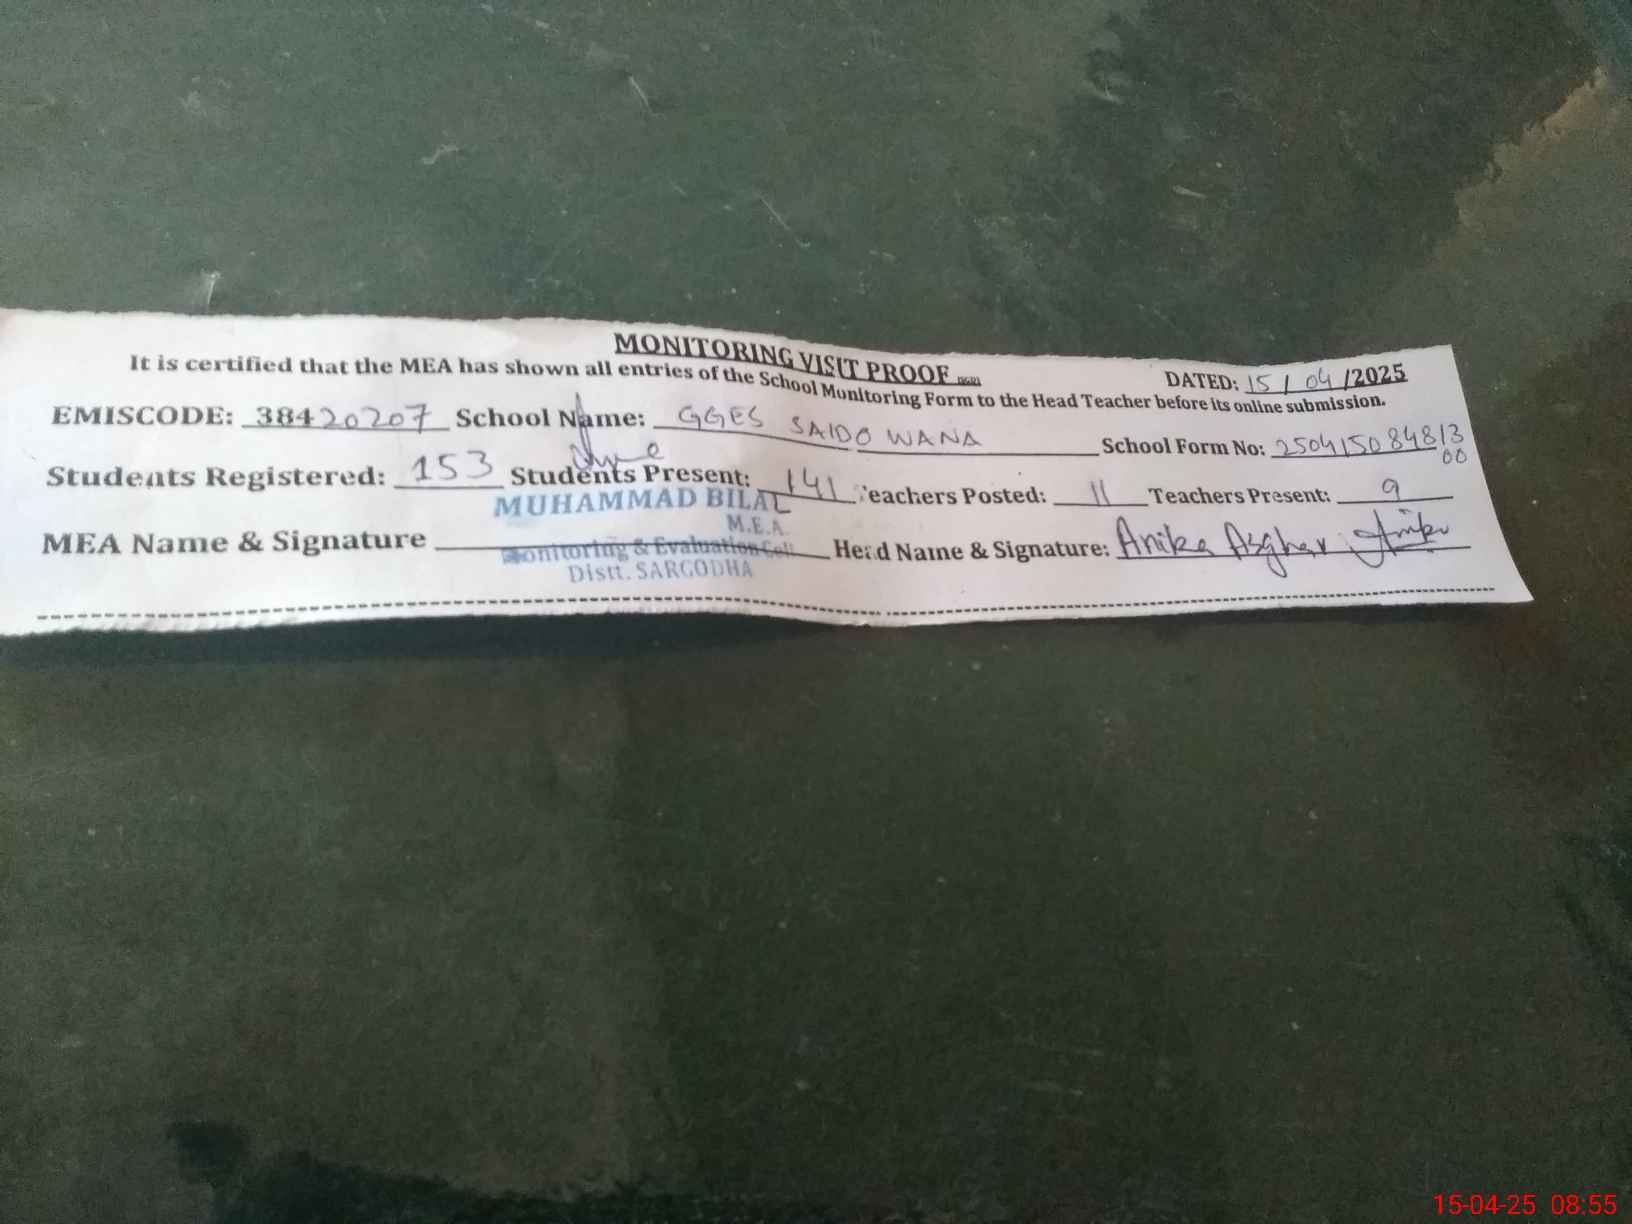 MONITORING VISIT PROOF
DATED: 15 / 04 /2025
It is certified that the MEA has shown all entries of the School Monitoring Form to the Head Teacher before its online submission.
EMISCODE: 38420207 School Name: GGES SAIDOWANA School Form No: 25041508481300
Students Registered: 153 Students Present: 141 Teachers Posted: 11 Teachers Present: 9
MUHAMMAD BILAL
M.E.A.
MEA Name & Signature Head Name & Signature: Anika Asghar Anika
Monitoring & Evaluation Cell
Distt. SARGODHA
15-04-25 08:55